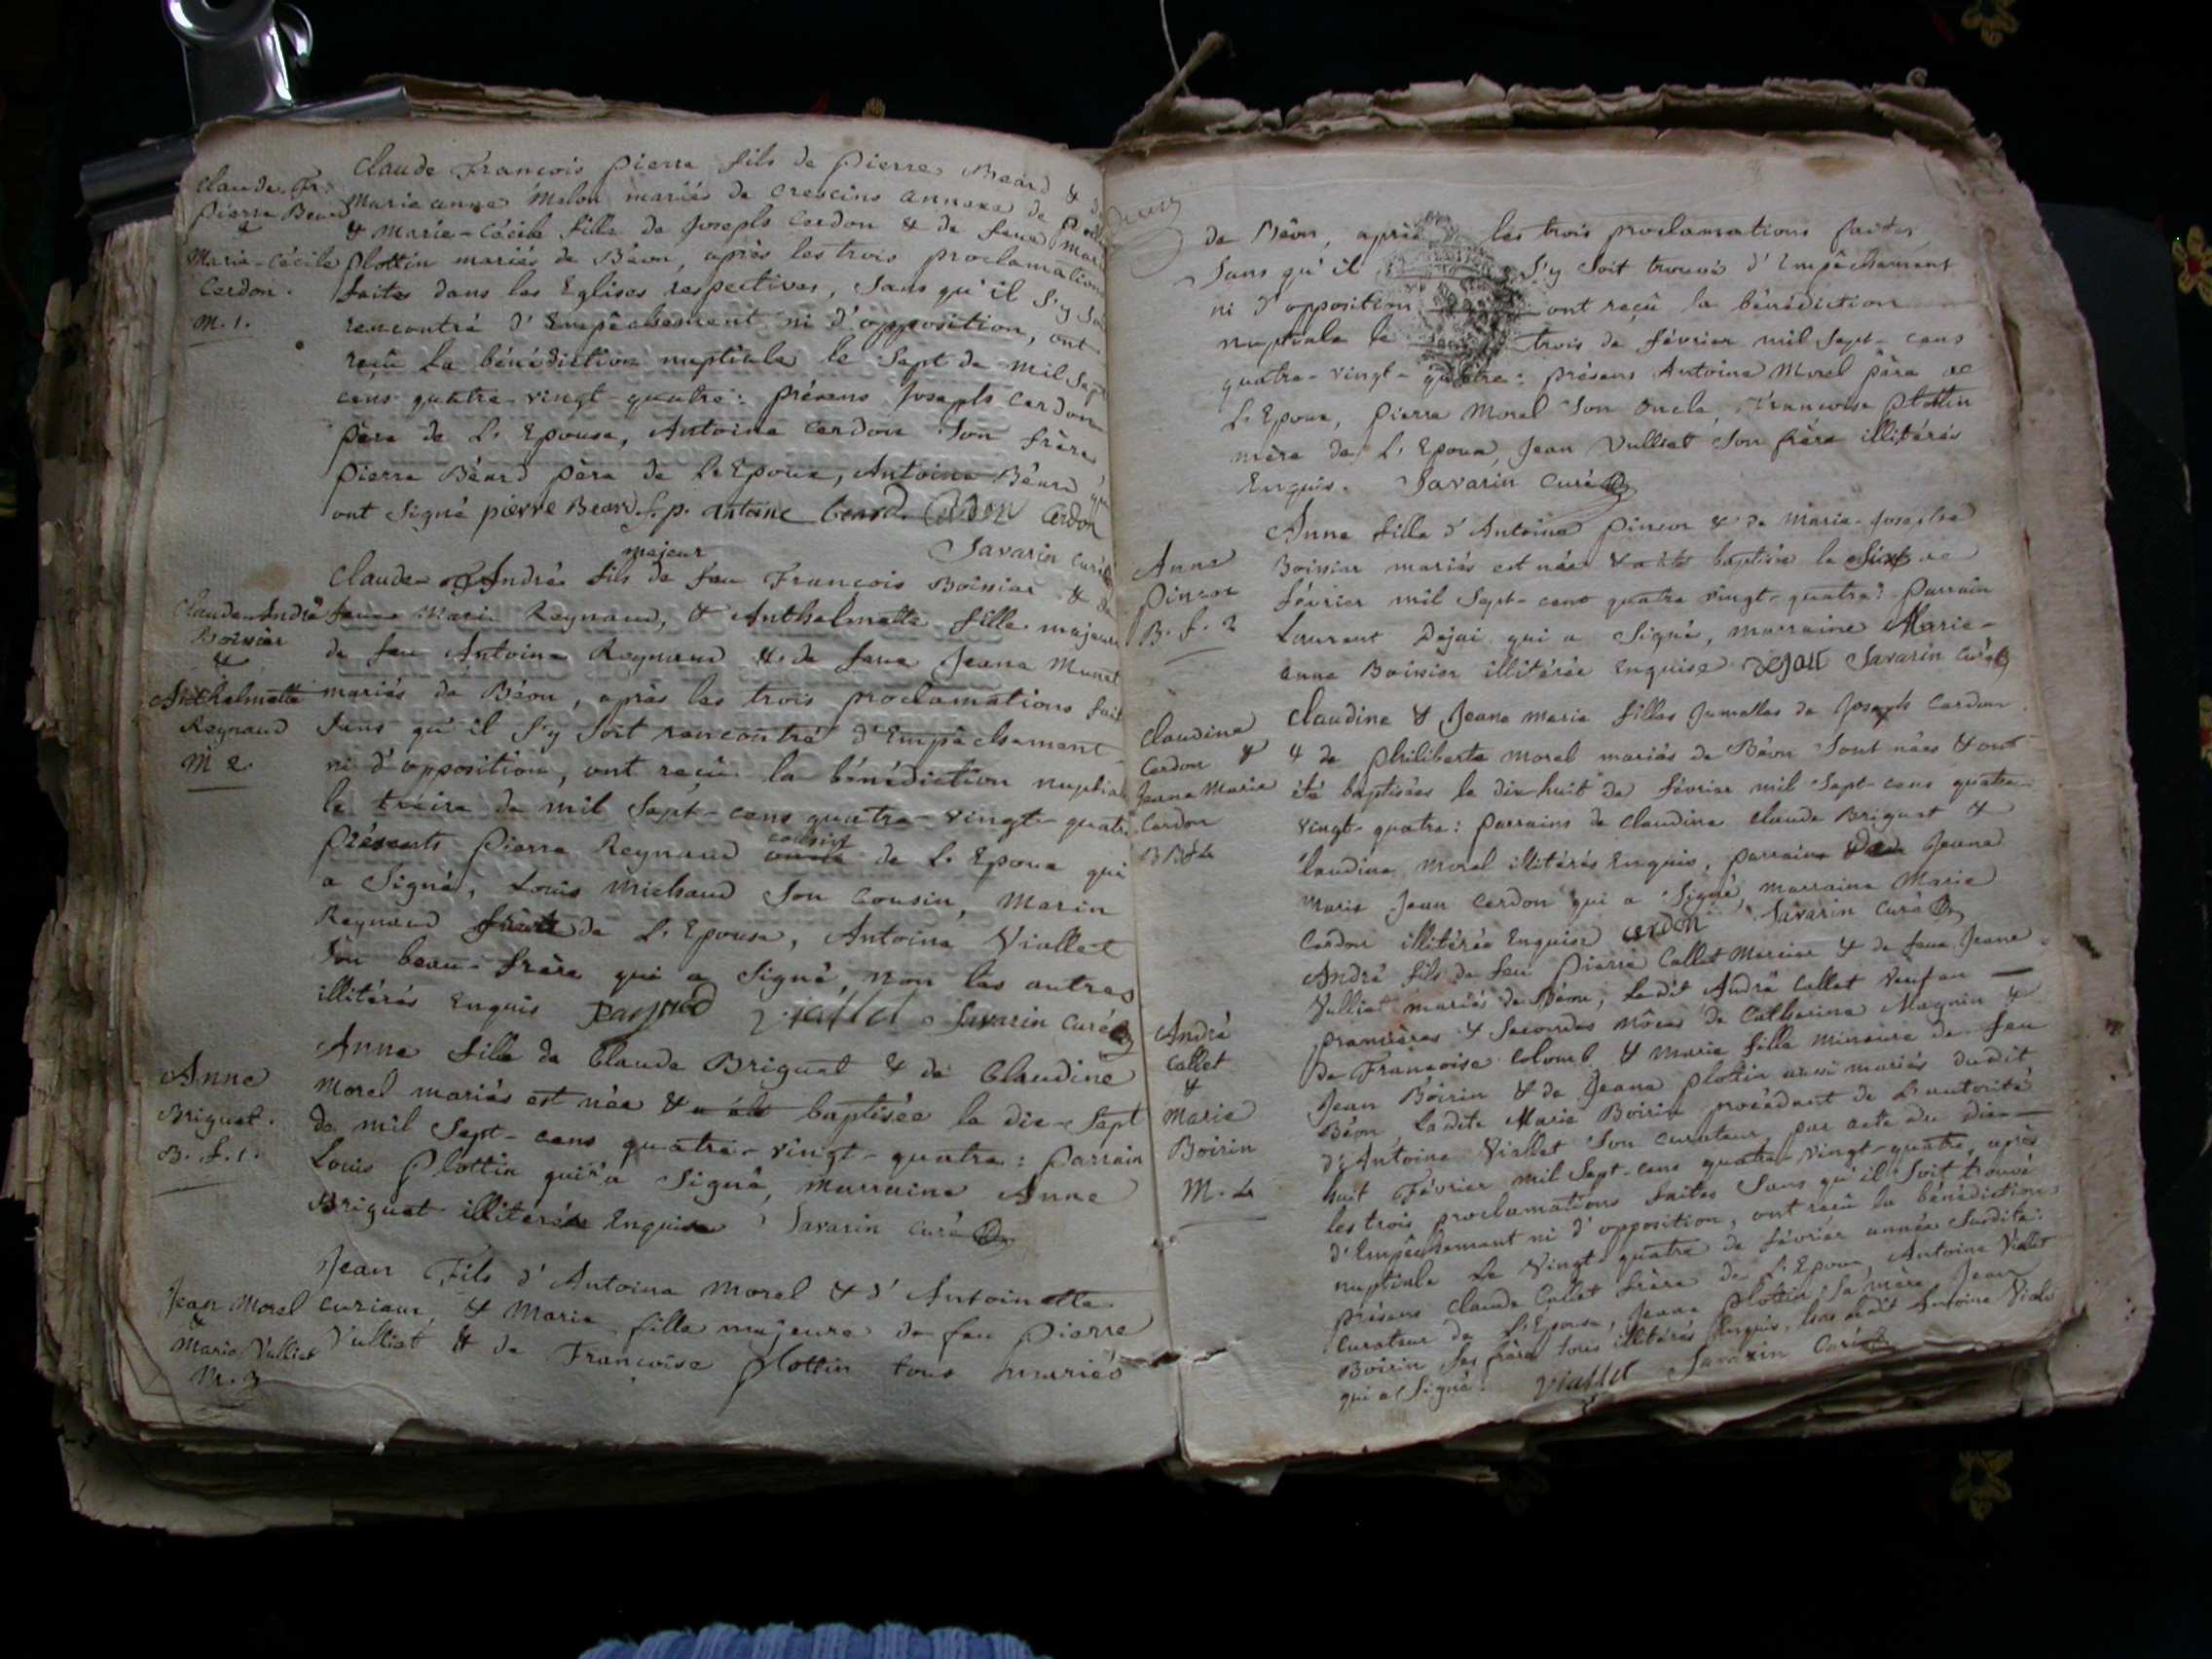 Claude François Pierre fils de Pierre Béard & de
Claude Fr:
Pierre Beard
&
Marie-Cécile
Cerdon.
M. 1.
Marie anne Melon mariés de Crescins annexe de
& Marie-Cécile fille de Joseph Cerdon & de feue
plottin mariés de Béon, après les trois proclamations
faites dans les Eglises respectives, sans qu'il s'y soit
rencontré d'Empêchement ni d'opposition, ont
reçû la bénédiction nuptiale le sept de mil sept
cens quatre-vingt quatre: présens Joseph Cerdon
père de L'Epouse, Antoine Cerdon son frère
Pierre Béard père de L'Epoux, Antoine Béard qui
ont signé pierre Beard f. p. antoine beard Cerdon Cerdon
Savarin curé
majeur
Claude André fils de feu François Boissier & de
Claude-André
Boissier
&
Anthelmette
Reynaud
M 2.
feue Marie Reynaud, & Anthelmette fille majeure
de feu Antoine Reynaud & de feue Jeane Munet
mariés de Béon, après les trois proclamations fait
sans qu'il s'y soit rencontré d'Empêchement
ni d'opposition, ont reçû la bénédiction nuptiale
le treize de mil sept-cens quatre-vingt-quatre
présents Pierre Reynaud cousin de L'Epoux qui
a signé, Louis Michaud son Cousin, Marin
Reynaud de L'Epouse, Antoine Viallet
son beau-frère qui a signé, non les autres
illitérés Enquis Raynod viallet Savarin curé
Anne
Briguet.
B. f. 1.
Anne fille de Claude Briguet & de Claudine
Morel mariés est née & a été baptisée le dix-sept
de mil sept-cens quatre-vingt-quatre: parrain
Louis Plottin qui a signé, marraine Anne
Briguet illitérée Enquise Savarin curé
Jean Morel
&
Marie Vulliet
M. 3
Jean Fils d'Antoine Morel & d'Antoinette
curiaux, & Marie fille majeure de feu Pierre
Vulliet & de Françoise plottin tous mariés
de Béon, après les trois proclamations faites
sans qu'il s'y soit trouvé d'Empêchement
ni d'opposition ont reçû la bénédiction
nuptiale le trois de février mil sept-cens
quatre-vingt-quatre: présens Antoine Morel père de
L'Epoux, Pierre Morel son oncle, Françoise Plottin
mère de L'Epoux, Jean Vulliet son frère illitérés
Enquis. Savarin curé
Anne
Pinson
B. f. 2
Anne fille d'Antoine Pinson & de Marie-Josephe
Boissier mariés est née & a été baptisée le six de
février mil sept-cent quatre vingt-quatre: parrain
Laurent Dejai qui a signé, marraine Marie-
anne Boissier illitérée Enquise Savarin curé
Claudine
Cerdon &
Jeane Marie
Cerdon
Claudine & Jeane marie filles Jumelles de Joseph Cerdon
& de Philiberte Morel mariés de Béon sont nées & ont
été baptisées le dix-huit de février mil sept-cens quatre-
vingt-quatre: parrains de Claudine Claude Briguet &
Claudine Morel illitérés Enquis, parrain Jeane
Marie Jean Cerdon qui a signé, marraine Marie
Cerdon illitérée Enquise cerdon Savarin curé
André
Callet
&
Marie
Boirin
M. 4
André fils de feu Pierre Callet Mercier & de feue Jeane
Vulliet mariés de Béon, Ledit André Callet veuf en
premières & secondes nôces de Catherine Magnin &
de Françoise Colomb, & Marie fille mineure de feu
Jean Boirin & de Jeane Plotin aussi mariés dudit
Béon Ladite Marie Boirin procédant de L'autorité
d'Antoine Viallet son curateur, par acte du dix-
huit Février mil sept-cens quatre-vingt-quatre, après
les trois proclamations faites sans qu'il soit trouvé
d'Empêchement ni d'opposition, ont reçû la bénédiction
nuptiale Le vingt-quatre de février année susdite:
présens Claude Callet frère de L'Epoux, Antoine Viallet
curateur de L'Epouse, Jeane plottin sa mère, Jean
Boirin ses frère tous illitérés Enquis, hors dudit Antoine Viallet
qui a signé: viallet Savarin curé